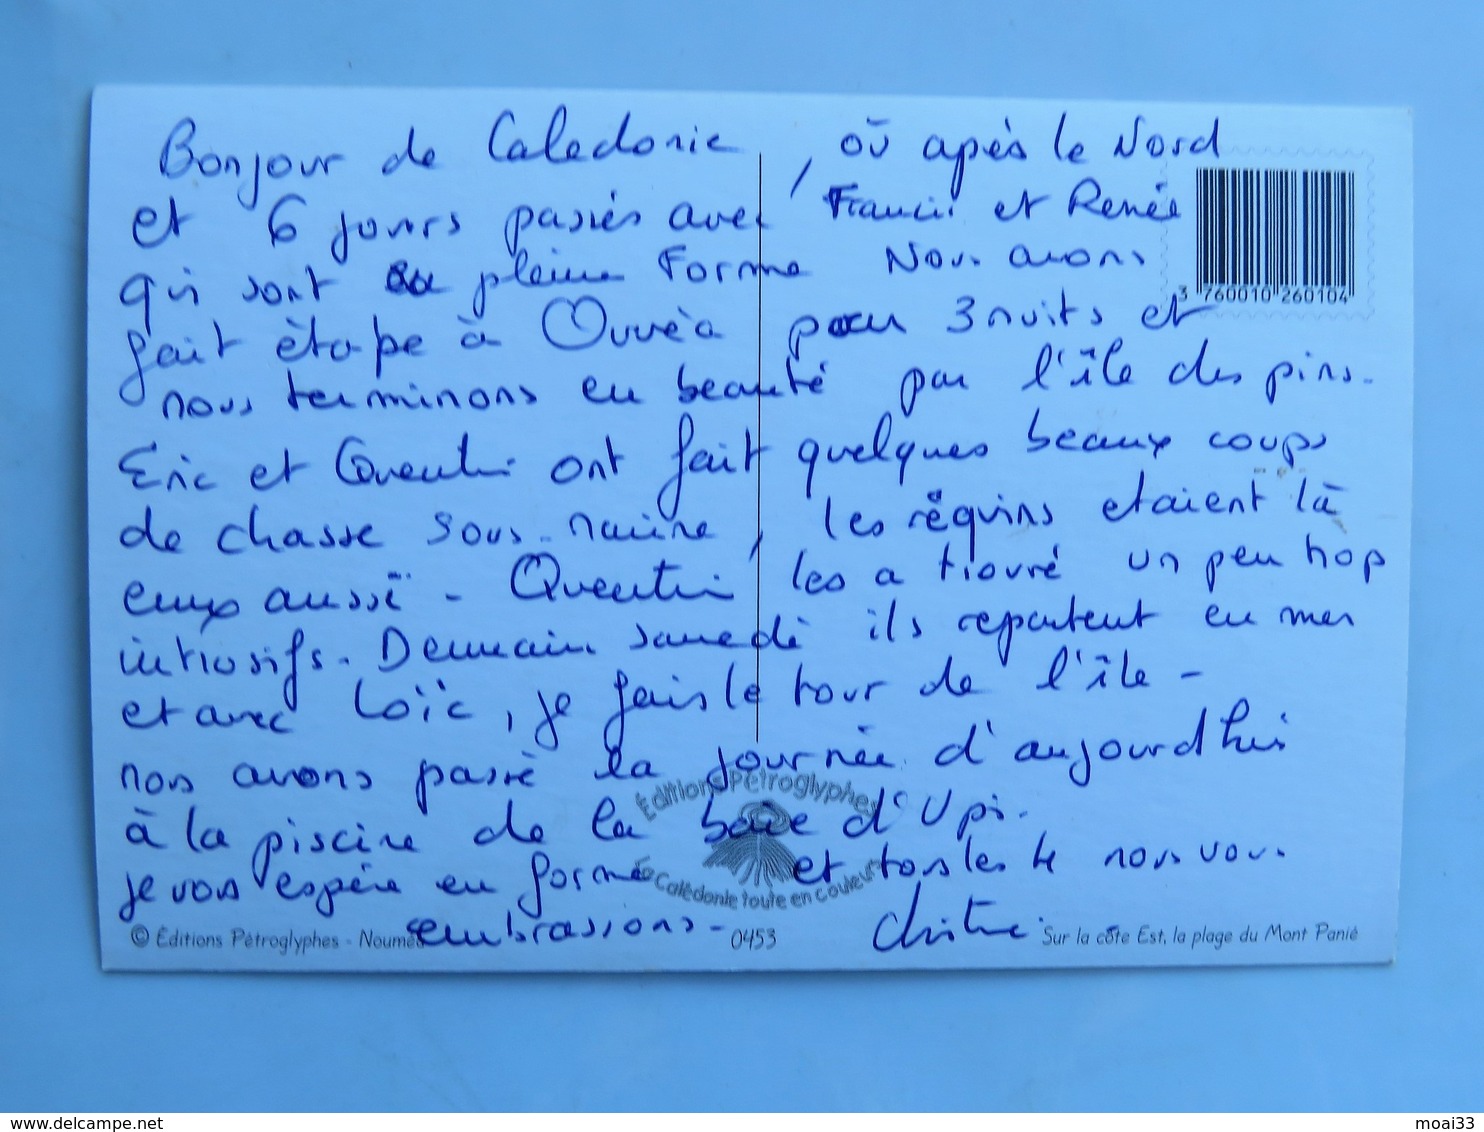 Bonjour de Caledonie, où après le Nord
et 6 jours passés avec Francis et Renée
qui sont en pleine Forme Nous avons
3 760010 260104
fait étape à Ouvéa pour 3 nuits et
nous terminons en beauté par l'île des pins.
Eric et Quentin ont fait quelques beaux coups
de chasse sous-marine, les réquins etaient là
eux aussi - Quentin les a trouvé un peu trop
intrusifs. Demain samedi ils repartent en mer
et avec Loïc, je fais le tour de l'île -
nous avons passé la journée d'aujourd'hui
à la piscine de la baie d'Upi.
je vous espère en forme et tous les 4 nous vous
embrassons - Christine
Éditions Pétroglyphes
La Calédonie toute en couleurs
© Éditions Pétroglyphes - Nouméa
0453
Sur la côte Est, la plage du Mont Panié
delcampe.net
moai33